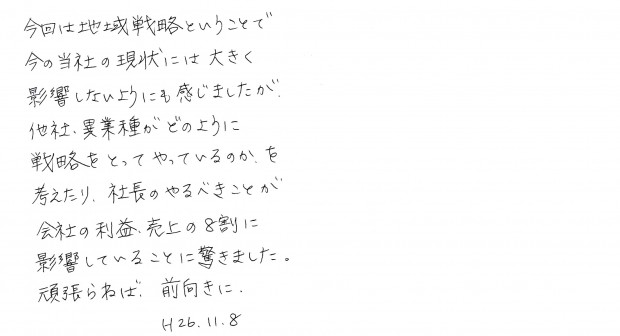 今回は地域戦略ということで
今の当社の現状には大きく
影響しないようにも感じましたが、
他社、異業種がどのように
戦略をとってやっているのか、を
考えたり、社長のやるべきことが
会社の利益、売上の8割に
影響していることに驚きました。
頑張らねば、前向きに、
H26.11.8